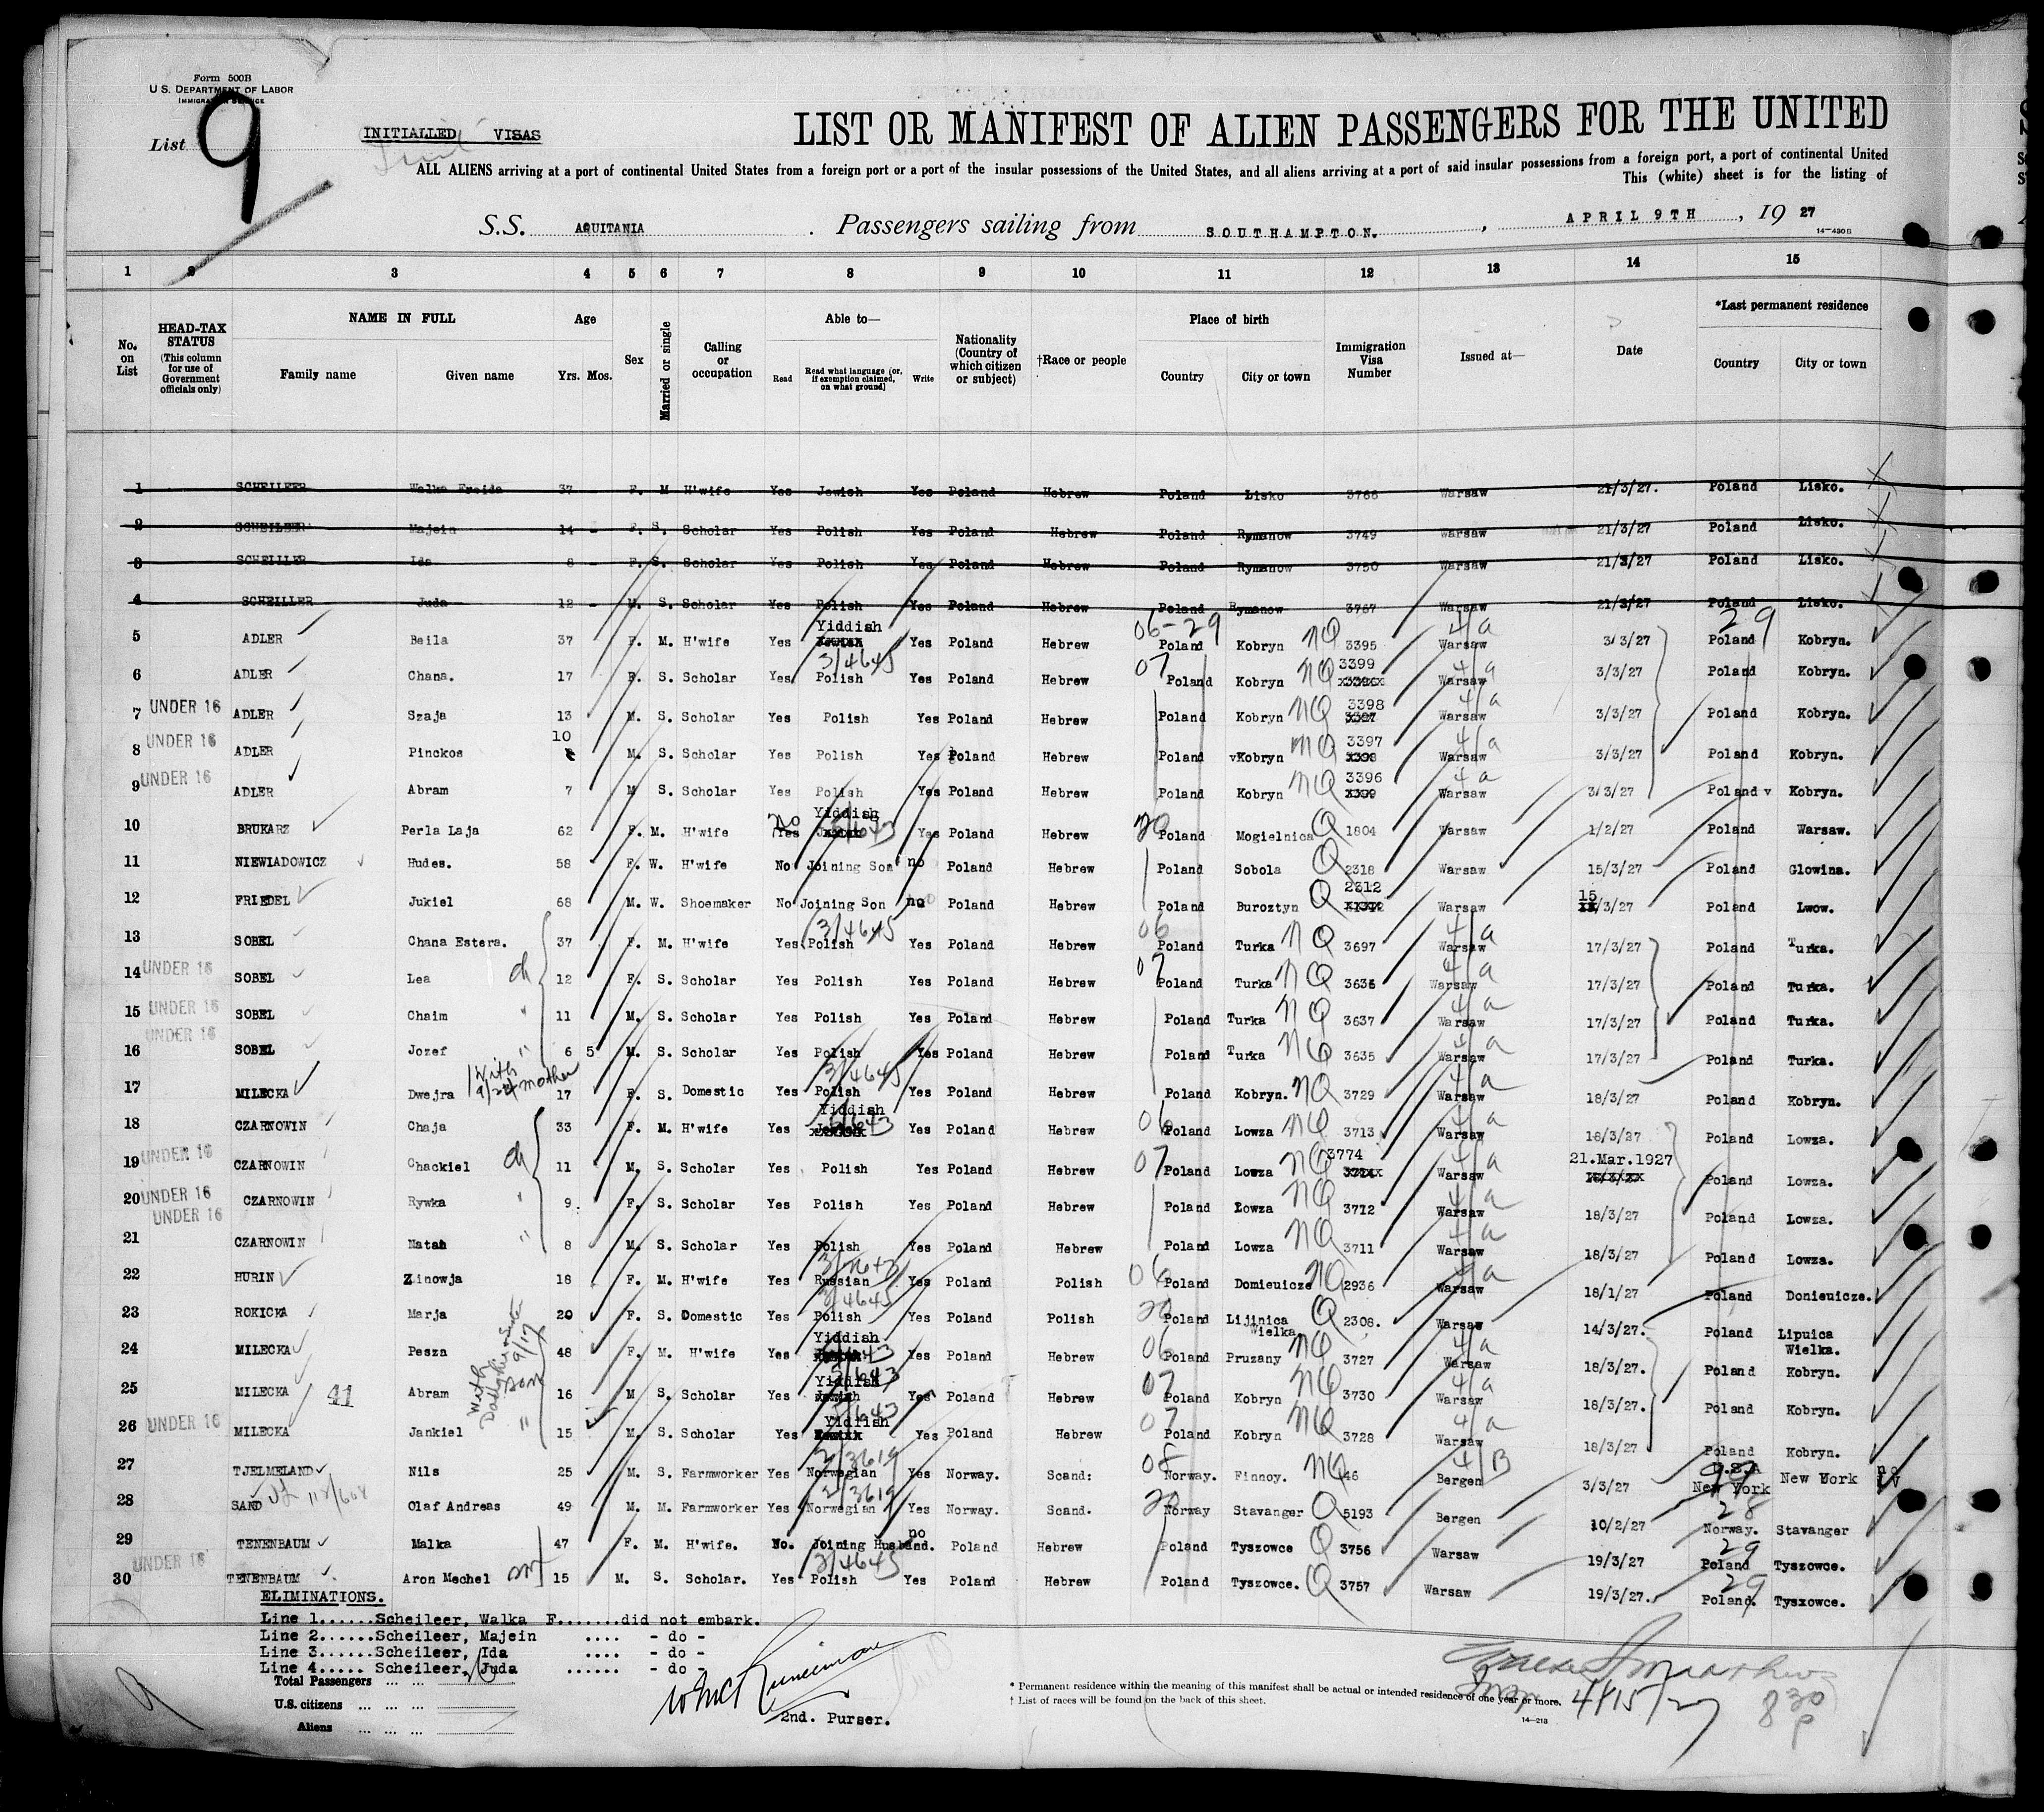 Form 500B
U.S. DEPARTMENT OF LABOR
IMMIGRATION SERVICE
List 9
INITIALLED VISAS
LIST OR MANIFEST OF ALIEN PASSENGERS FOR THE UNITED
ALL ALIENS arriving at a port of continental United States from a foreign port or a port of the insular possessions of the United States, and all aliens arriving at a port of said insular possessions from a foreign port, a port of continental United
This (white) sheet is for the listing of
S.S. AQUITANIA. Passengers sailing from SOUTHAMPTON., APRIL 9TH, 1927
14-430B
1 2 3 4 5 6 7 8 9 10 11 12 13 14 15
No. on List
HEAD-TAX STATUS (This column for use of Government officials only)
NAME IN FULL
Family name Given name
Age
Yrs. Mos.
Sex
Married or single
Calling or occupation
Able to—
Read Read what language (or, if exemption claimed, on what ground) Write
Nationality (Country of which citizen or subject)
†Race or people
Place of birth
Country City or town
Immigration Visa Number
Issued at—
Date
*Last permanent residence
Country City or town
1 SCHEILEER Walka Freida 37 - F. M H'wife Yes Jewish Yes Poland Hebrew Poland Lisko 3766 Warsaw 21/3/27. Poland Lisko.
2 SCHEILEER Majein 14 - F. S. Scholar Yes Polish Yes Poland Hebrew Poland Rymanow 3749 Warsaw 21/3/27 Poland Lisko.
3 SCHEILLER Ida 8 - F. S. Scholar Yes Polish Yes Poland Hebrew Poland Rymanow 3750 Warsaw 21/3/27 Poland Lisko.
4 SCHEILLER Juda 12 - M. S. Scholar Yes Polish Yes Poland Hebrew Poland Rymanow 3767 Warsaw 21/3/27 Poland Lisko.
5 ADLER Beila 37 F. M. H'wife Yes Yiddish Yes Poland Hebrew 06-29 Poland Kobryn NQ 3395 4/a Warsaw 3/3/27 29 Poland Kobryn.
6 ADLER Chana. 17 F. S. Scholar Yes 3/4645 Polish Yes Poland Hebrew 07 Poland Kobryn NQ 3399 4/a Warsaw 3/3/27 Poland Kobryn.
7 UNDER 16 ADLER Szaja 13 M. S. Scholar Yes Polish Yes Poland Hebrew Poland Kobryn NQ 3398 4/a Warsaw 3/3/27 Poland Kobryn.
8 UNDER 16 ADLER Pinckos 10 M. S. Scholar Yes Polish Yes Poland Hebrew Poland vKobryn NQ 3397 4/a Warsaw 3/3/27 Poland Kobryn.
9 UNDER 16 ADLER Abram 7 M S. Scholar Yes Polish Yes Poland Hebrew Poland Kobryn NQ 3396 4/a Warsaw 3/3/27 Poland v Kobryn.
10 BRUKARZ Perla Laja 62 F. M. H'wife no Yes Yiddish Yes Poland Hebrew 20 Poland Mogielnica Q 1804 Warsaw 1/2/27 Poland Warsaw.
11 NIEWIADOWICZ Hudes. 58 F. W. H'wife No Joining Son no Poland Hebrew Poland Sobola Q 2318 Warsaw 15/3/27 Poland Glowina.
12 FRIEDEL Jukiel 68 M. W. Shoemaker No Joining Son no Poland Hebrew Poland Buroztyn Q 2312 Warsaw 15/3/27 Poland Lwow.
13 SOBEL Chana Estera. 37 F. M. H'wife Yes 3/4645 Polish Yes Poland Hebrew 06 Poland Turka NQ 3697 4/a Warsaw 17/3/27 Poland Turka.
14 UNDER 16 SOBEL Lea ch 12 F. S. Scholar Yes Polish Yes Poland Hebrew 07 Poland Turka NQ 3636 4/a Warsaw 17/3/27 Poland Turka.
15 UNDER 16 SOBEL Chaim " 11 M. S. Scholar Yes Polish Yes Poland Hebrew Poland Turka NQ 3637 4/a Warsaw 17/3/27 Poland Turka.
16 UNDER 16 SOBEL Jozef " 6 5 M. S. Scholar Yes Polish Yes Poland Hebrew Poland Turka NQ 3635 4/a Warsaw 17/3/27 Poland Turka.
17 MILECKA Dwejra With mother 9/24 17 F. S. Domestic Yes 3/4645 Polish Yes Poland Hebrew Poland Kobryn. NQ 3729 4/a Warsaw 18/3/27 Poland Kobryn.
18 CZARNOWIN Chaja 33 F. M. H'wife Yes Yiddish Yes Poland Hebrew 06 Poland Lowza NQ 3713 4/a Warsaw 18/3/27 Poland Lowza.
19 UNDER 16 CZARNOWIN Chackiel ch 11 M. S. Scholar Yes Polish Yes Poland Hebrew 07 Poland Lowza NQ 3774 4/a Warsaw 21.Mar.1927 Poland Lowza.
20 UNDER 16 CZARNOWIN Rywka " 9. F. S. Scholar Yes Polish Yes Poland Hebrew Poland Lowza NQ 3712 4/a Warsaw 18/3/27 Poland Lowza.
21 UNDER 16 CZARNOWIN Natan " 8 M. S. Scholar Yes Polish Yes Poland Hebrew Poland Lowza NQ 3711 4/a Warsaw 18/3/27 Poland Lowza.
22 HURIN Zinowja 18 F. M. H'wife Yes Russian Yes Poland Polish 06 Poland Domieuicze NQ 2936 4/a Warsaw 18/1/27 Poland Donieuicze.
23 ROKICKA Marja 20 F. S. Domestic Yes 3/4645 Polish Yes Poland Polish 20 Poland Lijinica Wielka Q 2308. Warsaw 14/3/27. Poland Lipuica Wielka.
24 MILECKA Pesza With Daughter 48 F. M. H'wife Yes Yiddish Yes Poland Hebrew 06 Poland Pruzany NQ 3727 4/a Warsaw 18/3/27. Poland Kobryn.
25 MILECKA 41 Abram son 16 M S. Scholar Yes Yiddish Yes Poland Hebrew 07 Poland Kobryn NQ 3730 4/a Warsaw 18/3/27. Poland Kobryn.
26 UNDER 16 MILECKA Jankiel " 15 M. S. Scholar Yes Yiddish Yes Poland Hebrew 07 Poland Kobryn NQ 3728 4/a Warsaw 18/3/27 Poland Kobryn.
27 TJELMELAND Nils 25 M. S. Farmworker Yes 2/3619 Norwegian Yes Norway. Scand: 08 Norway. Finnoy. NQ 46 4/B Bergen 3/3/27 U.S.A New York New York no IV
28 SAND Olaf Andreas 49 M. M. Farmworker Yes 2/3619 Norwegian Yes Norway. Scand. 20 Norway Stavanger Q 5193 Bergen 10/2/27 28 Norway. Stavanger
29 TENENBAUM Malka 47 F. M. H'wife. No. Joining Husband. no Poland Hebrew Poland Tyszowce Q 3756 Warsaw 19/3/27 29 Poland Tyszowce.
30 UNDER 16 TENENBAUM Aron Mechel son 15 M. S. Scholar. Yes 3/4645 Polish Yes Poland Hebrew Poland Tyszowce. Q 3757 Warsaw 19/3/27. 29 Poland. Tysxowce.
ELIMINATIONS.
Line 1......Scheileer, Walka F.......did not embark.
Line 2......Scheileer, Majein .... - do -
Line 3......Scheileer, Ida .... - do -
Line 4..... Scheileer, Juda ...... - do -
Total Passengers
U.S. citizens
Aliens
2nd. Purser.
* Permanent residence within the meaning of this manifest shall be actual or intended residence of one year or more.
† List of races will be found on the back of this sheet.
14-213
4/15/27
8 30 P
9